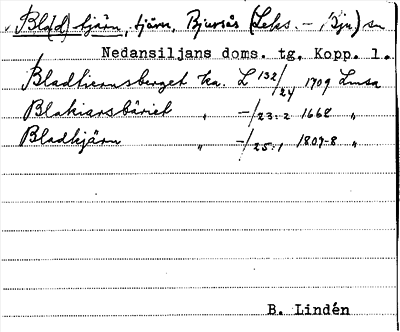 Bla(d)tjärn, tjärn, Bjursås (Leks. – Bju) sn
Nedansiljans doms. tg, Kopp. l.
Bladtiernsberget ka. L 132/24 1709 Lmsa
Blakiarsbäriet " –/23:2 1668 "
Bladkjärn " –/25:1 1807-8 "
B. Lindén